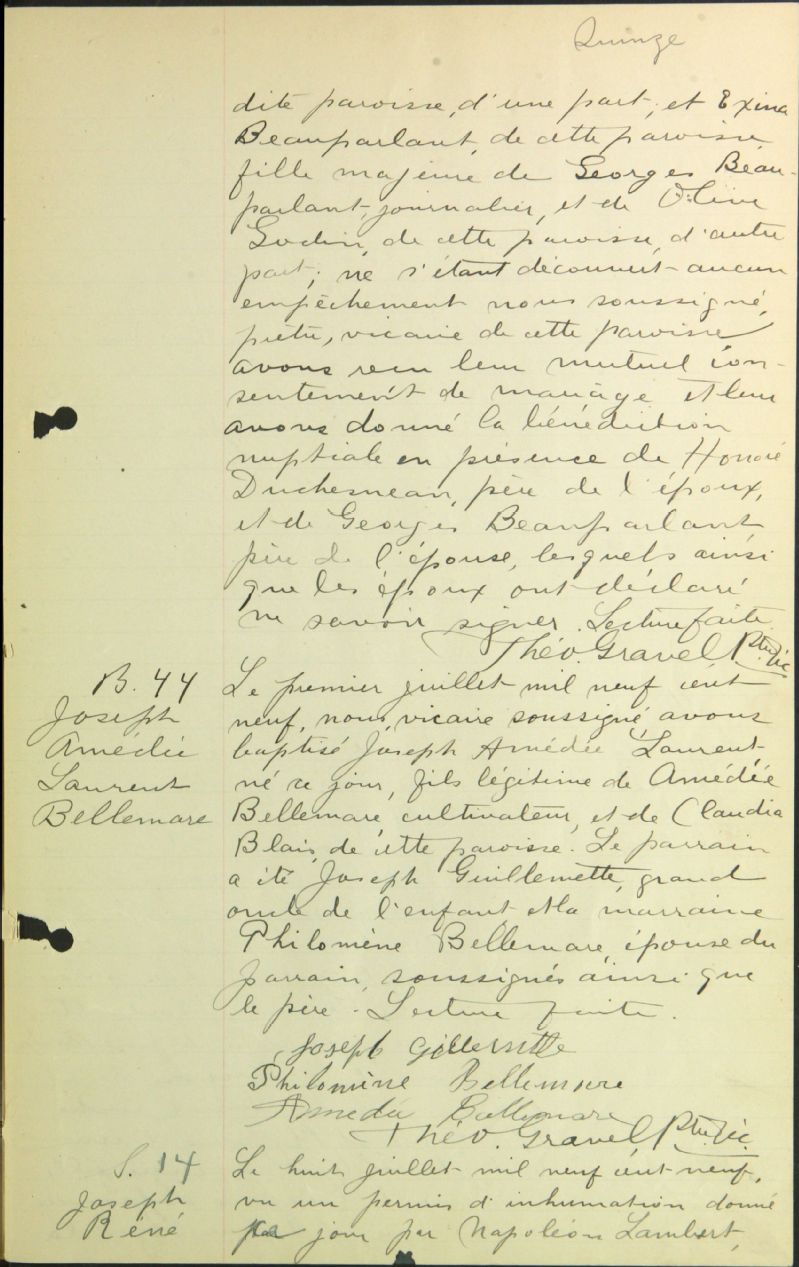 Quinze
dite paroisse, d'une part; et Exina
Beauparlant, de cette paroisse
fille majeure de Georges Beau-
parlant, journalier, et de Olive
Godin, de cette paroisse, d'autre
part; ne s'étant découvert aucun
empêchement nous soussigné,
prêtre, vicaire de cette paroisse
avons reçu leur mutuel con-
sentement de mariage et leur
avons donné la bénédiction
nuptiale en présence de Honoré
Duchesneau, père de l'époux,
et de Georges Beauparlant
père de l'épouse, lesquels ainsi
que les époux ont déclaré
ne savoir signer. Lecture faite.
Théo. Gravel Ptre Vic
B. 44
Joseph
Amédée
Laurent
Bellemare
Le premier juillet mil neuf cent
neuf, nous, vicaire soussigné, avons
baptisé Joseph Amédée Laurent
né ce jour, fils légitime de Amédée
Bellemare, cultivateur, et de Claudia
Blais, de cette paroisse. Le parrain
a été Joseph Guillemette, grand
oncle de l'enfant et la marraine
Philomène Bellemare, épouse du
parrain, soussignés ainsi que
le père. Lecture faite.
Joseph Gillemette
Philomène Bellemare
Amédée Bellemare
Théo. Gravel Ptre Vic.
S. 14
Joseph
Réné
Le huit juillet mil neuf cent neuf,
vu un permis d'inhumation donné
jour par Napoléon Lambert,